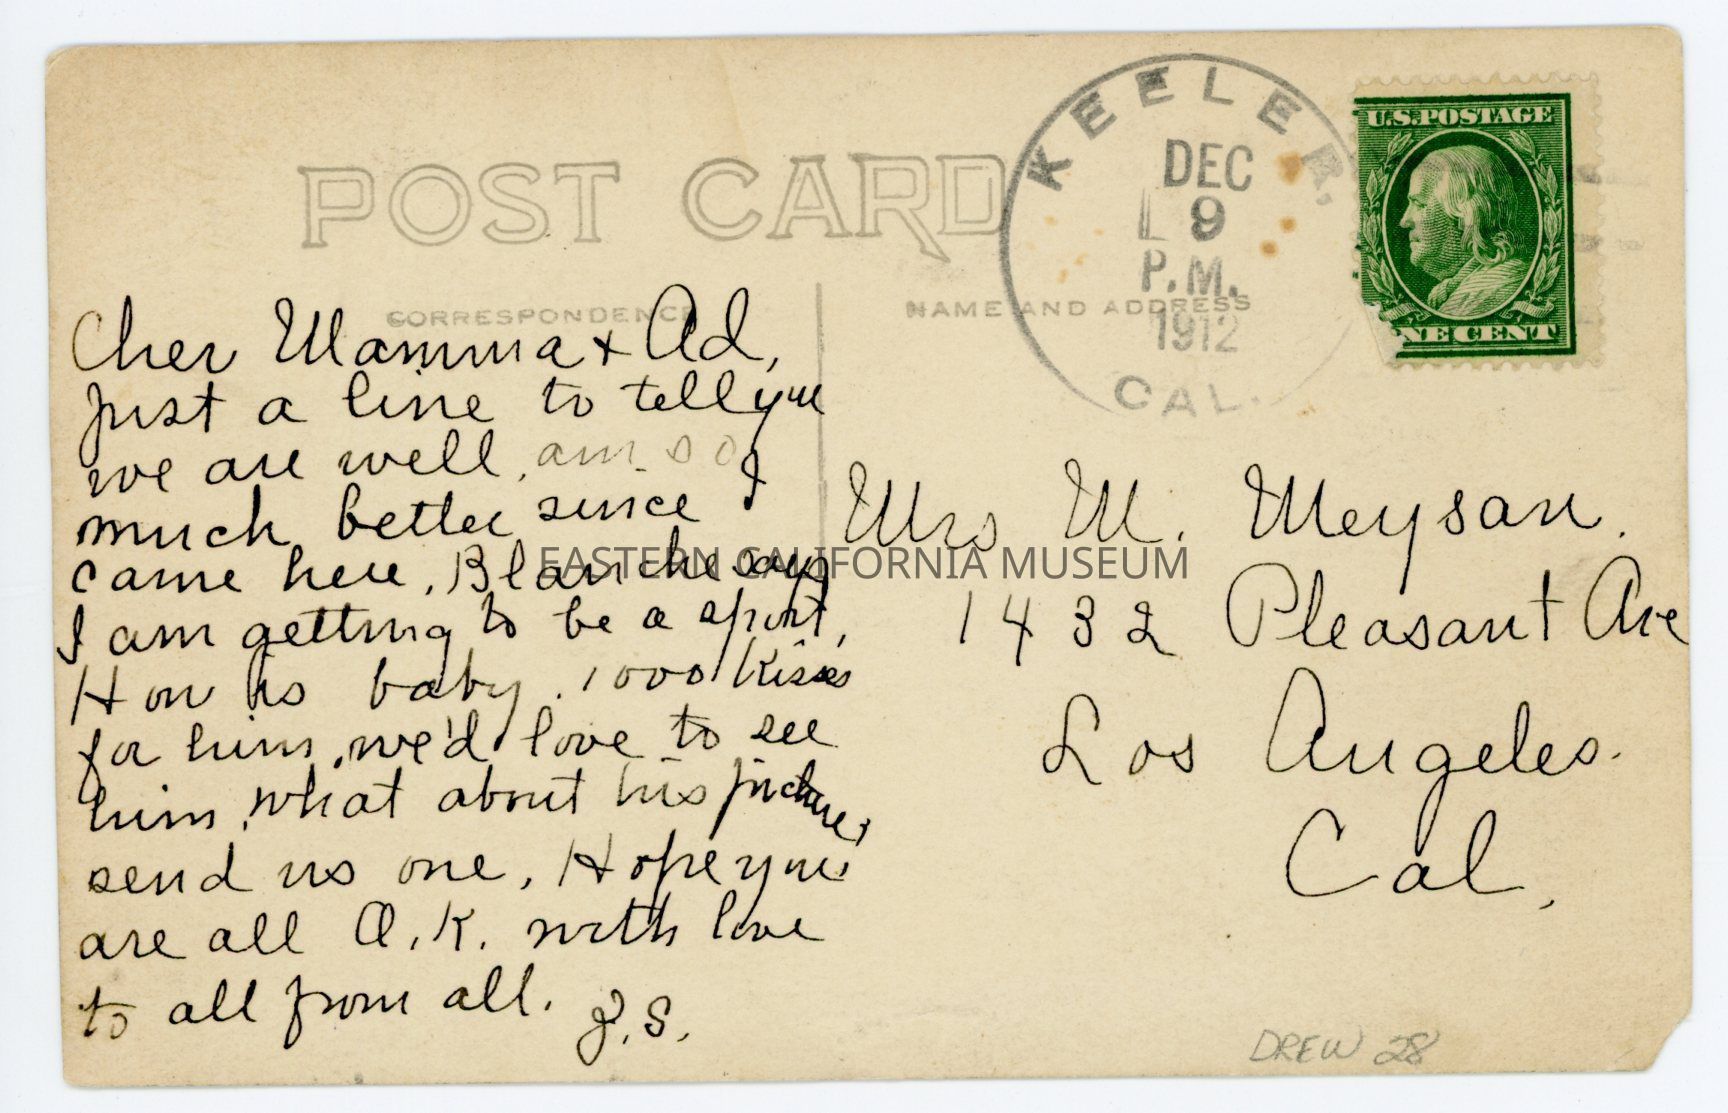 POST CARD
CORRESPONDENCE
NAME AND ADDRESS
KEELER,
DEC
9
P.M.
1912
CAL.
U.S.POSTAGE
NE CENT
Cher Mamma + Ad,
Just a line to tell you
we are well, am so
much better since I
came here, Blanche says
I am getting to be a sport,
How is baby. 1000 kisses
for him, we'd love to see
him, what about his picture,
send us one, Hope you
are all O.K. with love
to all from all. J.S.
Mrs M. Meysan.
1432 Pleasant Ave
Los Angeles.
Cal,
EASTERN CALIFORNIA MUSEUM
DREW 28